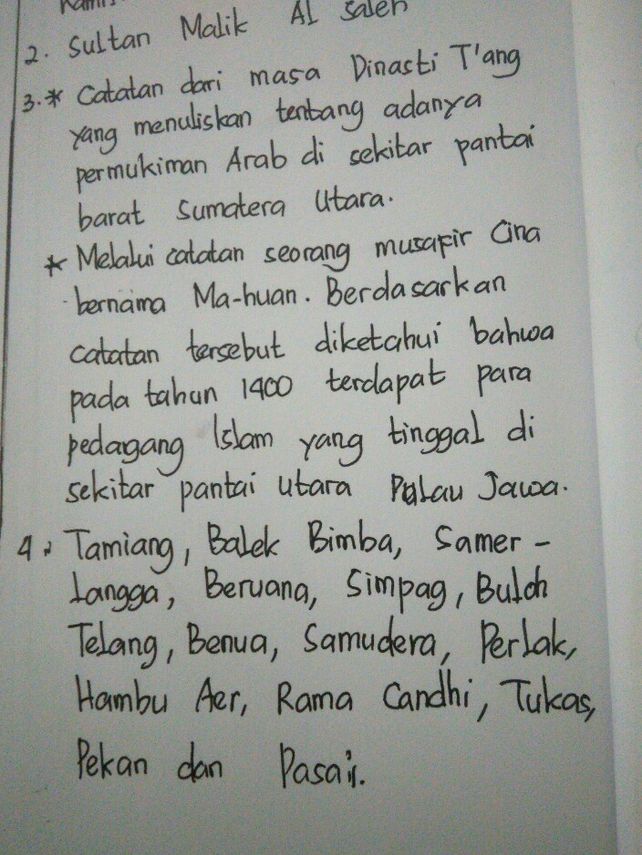 2. Sultan Malik Al Saleh
3. * Catatan dari masa Dinasti T'ang
yang menuliskan tentang adanya
permukiman Arab di sekitar pantai
barat Sumatera Utara.
* Melalui catatan seorang musafir Cina
bernama Ma-huan. Berdasarkan
catatan tersebut diketahui bahwa
pada tahun 1400 terdapat para
pedagang Islam yang tinggal di
sekitar pantai utara Pulau Jawa.
4. Tamiang, Balek Bimba, Samer-
Langga, Beruana, Simpag, Buloh
Telang, Benua, Samudera, Perlak,
Hambu Aer, Rama Candhi, Tukas,
Pekan dan Pasai.